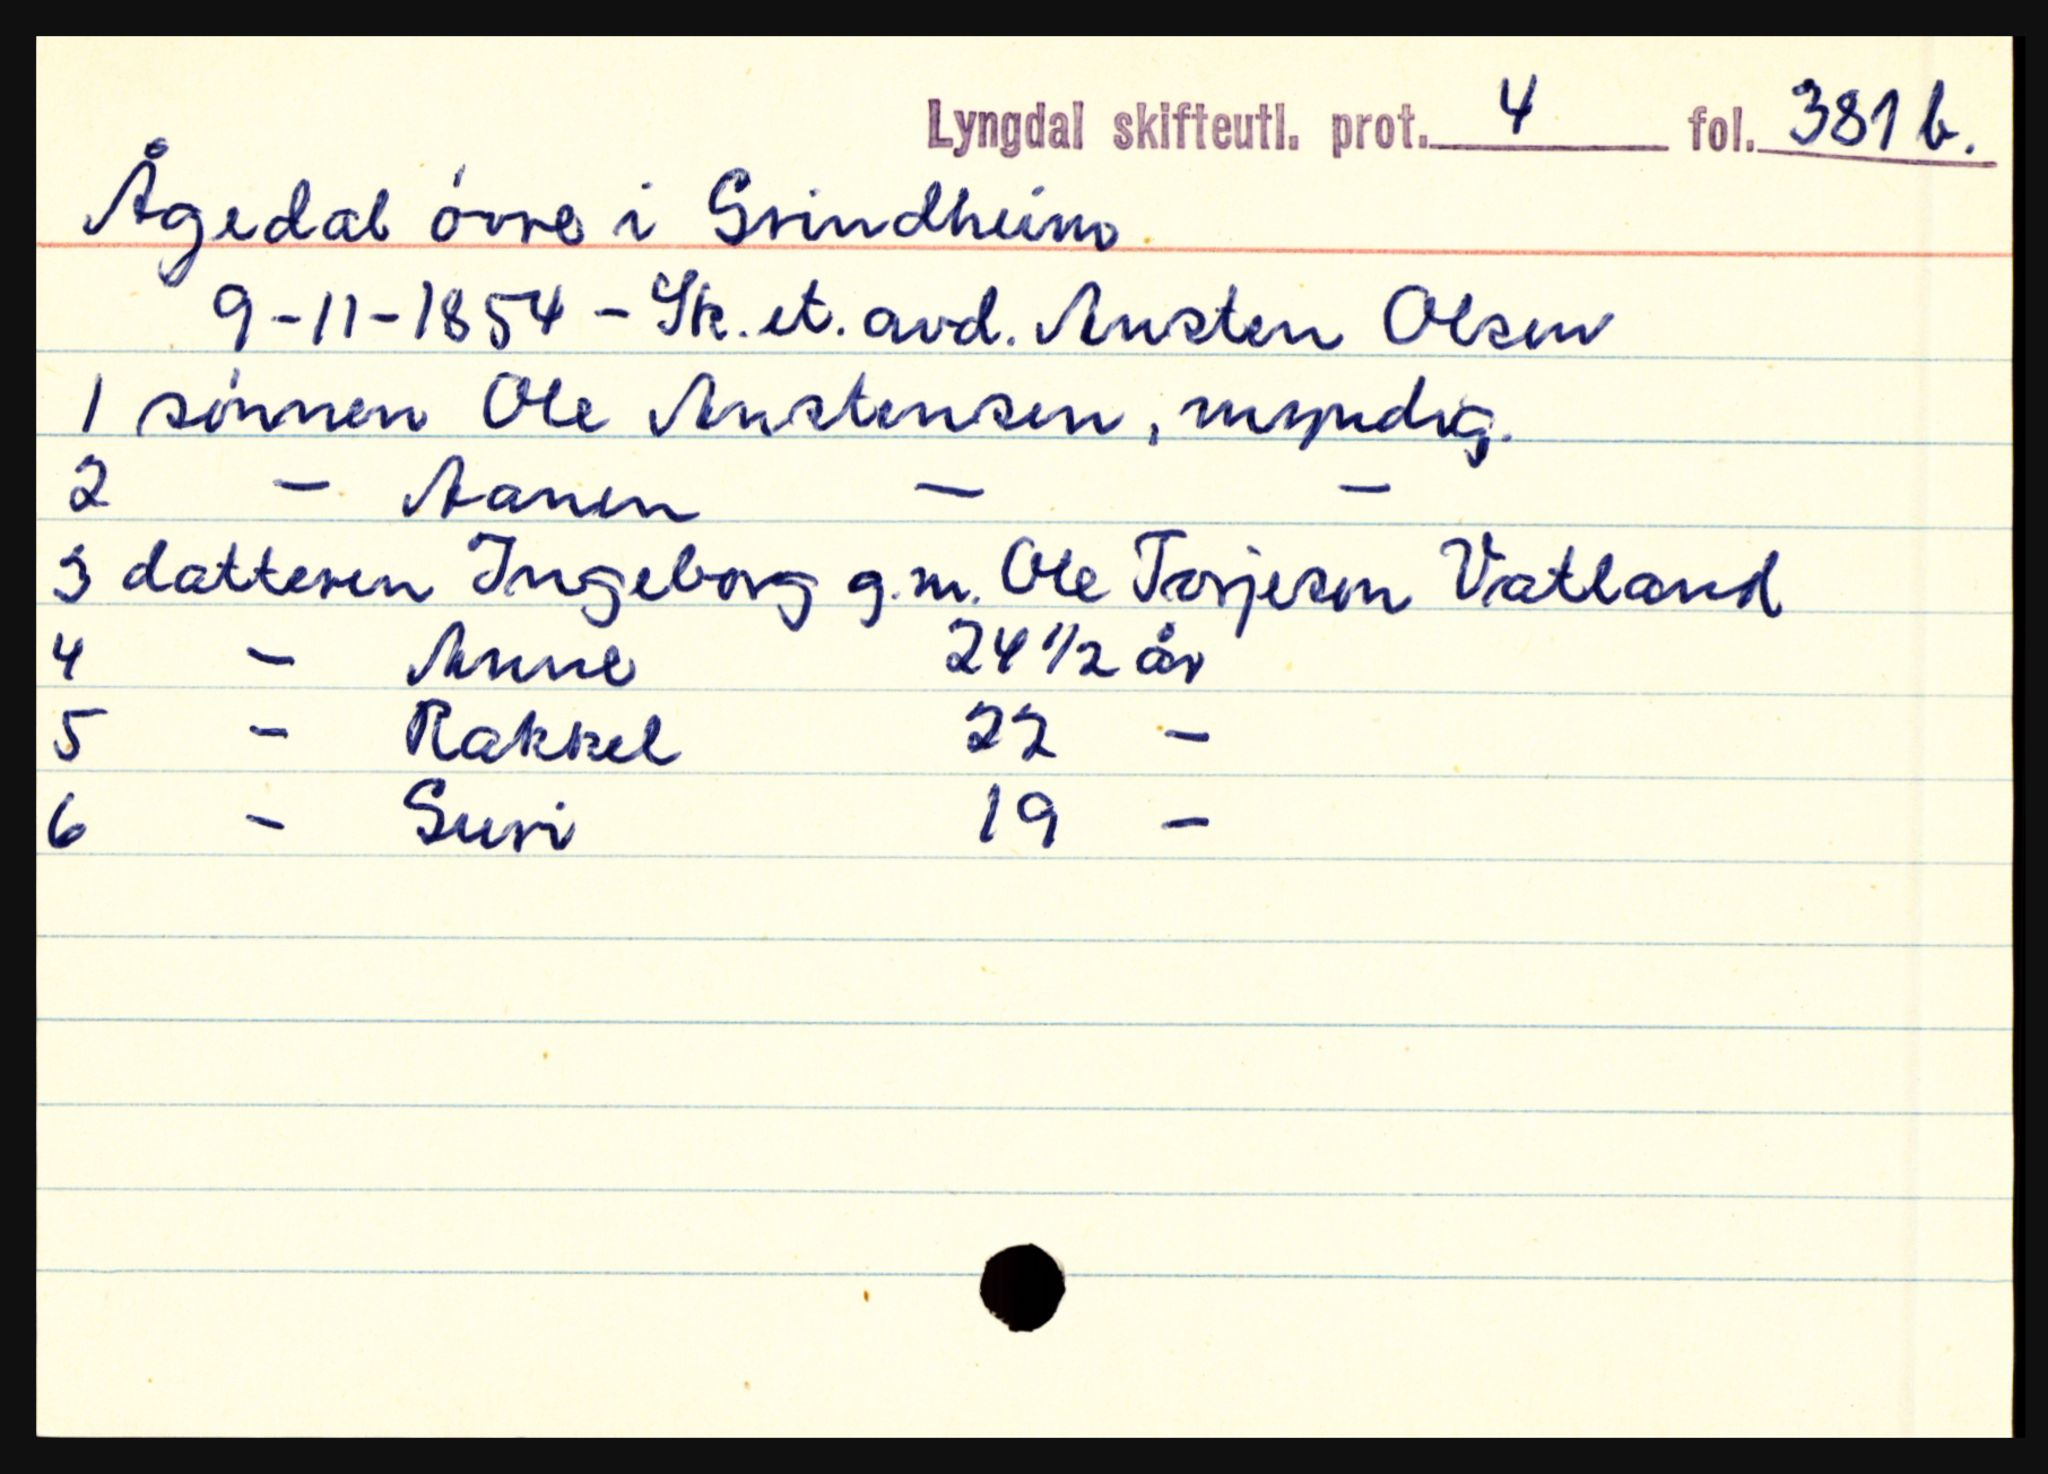 Lyngdal skifteutl. prot. 4 fol. 381 b.
Ågedal övre i Grindheim
9-11-1854 - Sk. et. avd. Austen Olsen
1 sönnen Ole Austensen, myndig.
2 - Aanen - -
3 datteren Ingeborg g.m. Ole Torjesen Vatland
4 - Anne 24 1/2 år
5 - Rakkel 22 -
6 - Guri 19 -